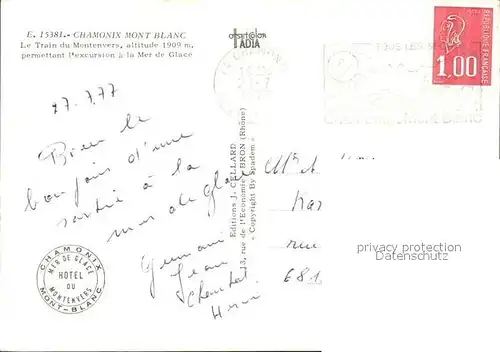 E. 15381. - CHAMONIX MONT BLANC
Le Train du Montenvers, altitude 1909 m.
permettant l'excursion à la Mer de Glace
offset color
IADIA
REPUBLIQUE FRANÇAISE
1,00
TOUS LES
17.7.77
Bien le
bonjour d'une
sortie à la
mer de glace
Germain
Jean
Chantal
Editions J. CELLARD
3, rue de l'Economie BRON (Rhône)
« Copyright By Spadem »
Mr et
rue
681
privacy protection
DATENSCHUTZ
CHAMONIX
MER DE GLACE
HOTEL
DU
MONTENVERS
MONT-BLANC